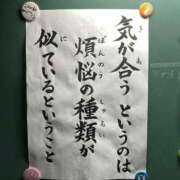 気が合うというのは
煩悩の種類が
似ているということ